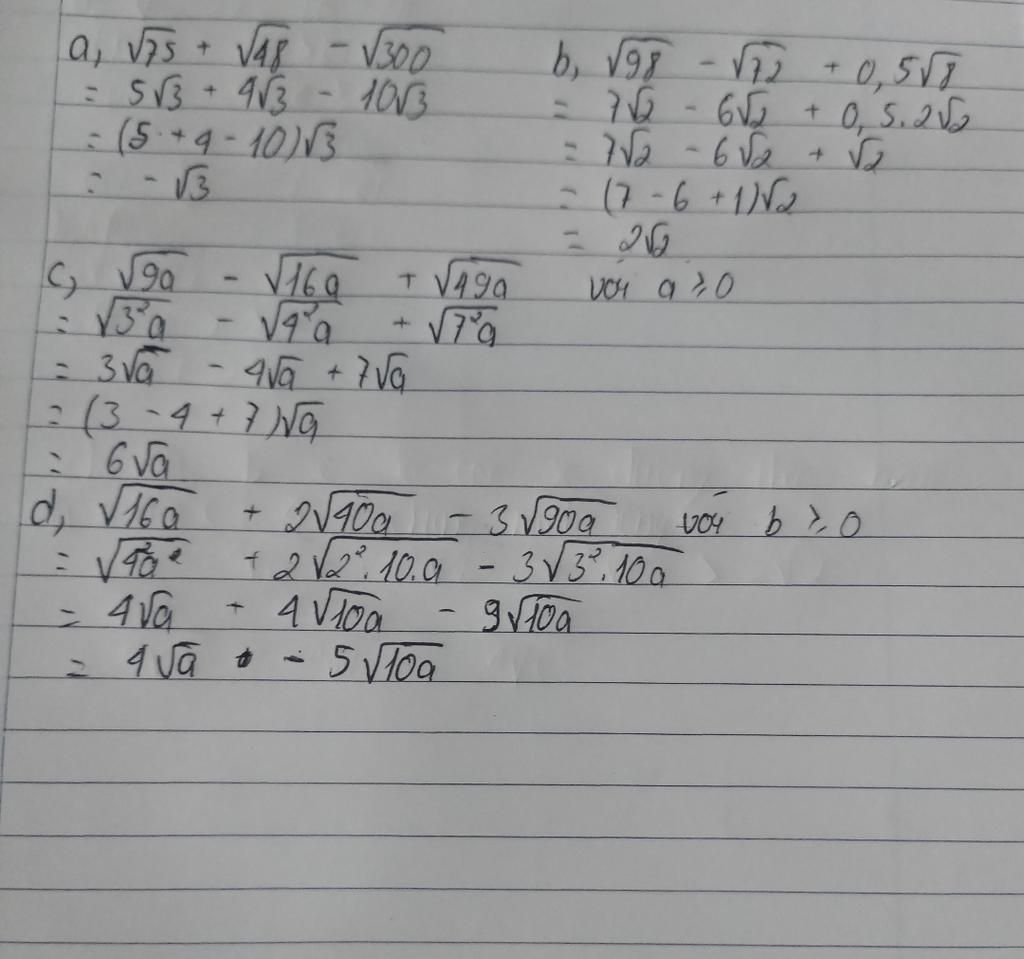 a, √75 + √48 - √300
= 5√3 + 4√3 - 10√3
= (5 + 4 - 10)√3
= - √3
b, √98 - √72 + 0,5√8
= 7√2 - 6√2 + 0,5.2√2
= 7√2 - 6√2 + √2
= (7 - 6 + 1)√2
= 2√2
c, √9a - √16a + √49a với a ≥ 0
= √3²a - √4²a + √7²a
= 3√a - 4√a + 7√a
= (3 - 4 + 7)√a
= 6√a
d, √16a + 2√40a - 3√90a với b ≥ 0
= √4²a² + 2√2².10.a - 3√3².10a
= 4√a + 4√10a - 9√10a
= 4√a - 5√10a